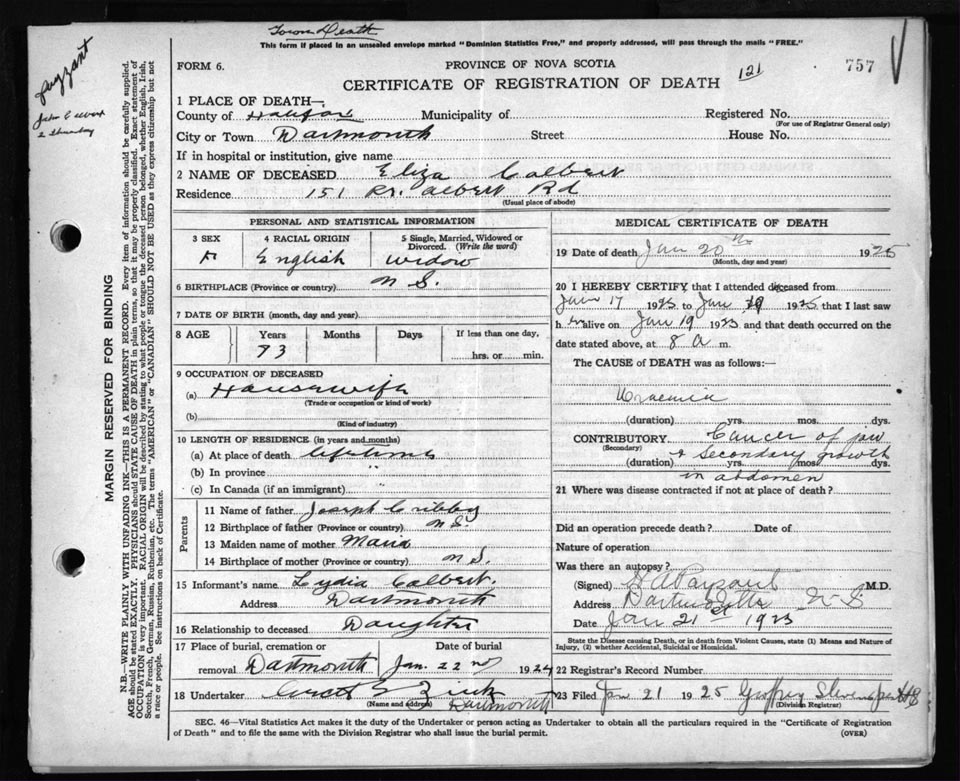 Town Death
This form if placed in an unsealed envelope marked "Dominion Statistics Free," and properly addressed, will pass through the mails "FREE."
FORM 6.
PROVINCE OF NOVA SCOTIA
757
CERTIFICATE OF REGISTRATION OF DEATH 121
1 PLACE OF DEATH—
County of Halifax Municipality of Registered No.
(For use of Registrar General only)
City or Town Dartmouth Street House No.
If in hospital or institution, give name
2 NAME OF DECEASED Eliza Calbert
Residence 151 Rr. Albert Rd
(Usual place of abode)
PERSONAL AND STATISTICAL INFORMATION
3 SEX 4 RACIAL ORIGIN 5 Single, Married, Widowed or Divorced. (Write the word)
F English widow
6 BIRTHPLACE (Province or country) N S.
7 DATE OF BIRTH (month, day and year)
8 AGE Years Months Days If less than one day,
73 hrs. or min.
9 OCCUPATION OF DECEASED
(a) Housewife
(Trade or occupation or kind of work)
(b)
(Kind of industry)
10 LENGTH OF RESIDENCE (in years and months)
(a) At place of death lifetime
(b) In province "
(c) In Canada (if an immigrant)
Parents
11 Name of father Joseph Cribby
12 Birthplace of father (Province or country) N S.
13 Maiden name of mother Maria
14 Birthplace of mother (Province or country) N S.
15 Informant's name Lydia Calbert.
Address Dartmouth
16 Relationship to deceased Daughter
17 Place of burial, cremation or removal Date of burial
Dartmouth Jan. 22nd 1924
18 Undertaker Zink
(Name and address) Dartmouth
MEDICAL CERTIFICATE OF DEATH
19 Date of death Jan 20th 1925
(Month, day and year)
20 I HEREBY CERTIFY that I attended deceased from
Jan 17 1925 to Jan 19 1925 that I last saw
h er alive on Jan 19 1925 and that death occurred on the
date stated above, at 8 a m.
The CAUSE of DEATH was as follows:—
Uraemia
(duration) yrs. mos. dys.
CONTRIBUTORY Cancer of jaw
(Secondary) & Secondary growth
(duration) yrs. mos. dys.
in abdomen
21 Where was disease contracted if not at place of death?
Did an operation precede death? Date of
Nature of operation
Was there an autopsy?
(Signed) M.D.
Address Dartmouth N S
Date Jan 21st 1925
State the Disease causing Death, or in death from Violent Causes, state (1) Means and Nature of
Injury, (2) whether Accidental, Suicidal or Homicidal.
22 Registrar's Record Number
23 Filed Jan 21 1925 Geoffrey Stevens
(Division Registrar)
SEC. 46—Vital Statistics Act makes it the duty of the Undertaker or person acting as Undertaker to obtain all the particulars required in the "Certificate of Registration
of Death" and to file the same with the Division Registrar who shall issue the burial permit.
(OVER)
MARGIN RESERVED FOR BINDING
N.B.—WRITE PLAINLY WITH UNFADING INK—THIS IS A PERMANENT RECORD. Every item of information should be carefully supplied.
AGE should be stated EXACTLY. PHYSICIANS should STATE CAUSE OF DEATH in plain terms, so that it may be properly classified. Exact statement of
OCCUPATION is very important. RACIAL ORIGIN will be described by stating to what people or tongue the deceased person belonged, whether English, Irish,
Scotch, French, German, Russian, Ruthenian, etc. The terms "AMERICAN" or "CANADIAN" SHOULD NOT BE USED as they express citizenship but not
a race or people. See instructions on back of Certificate.